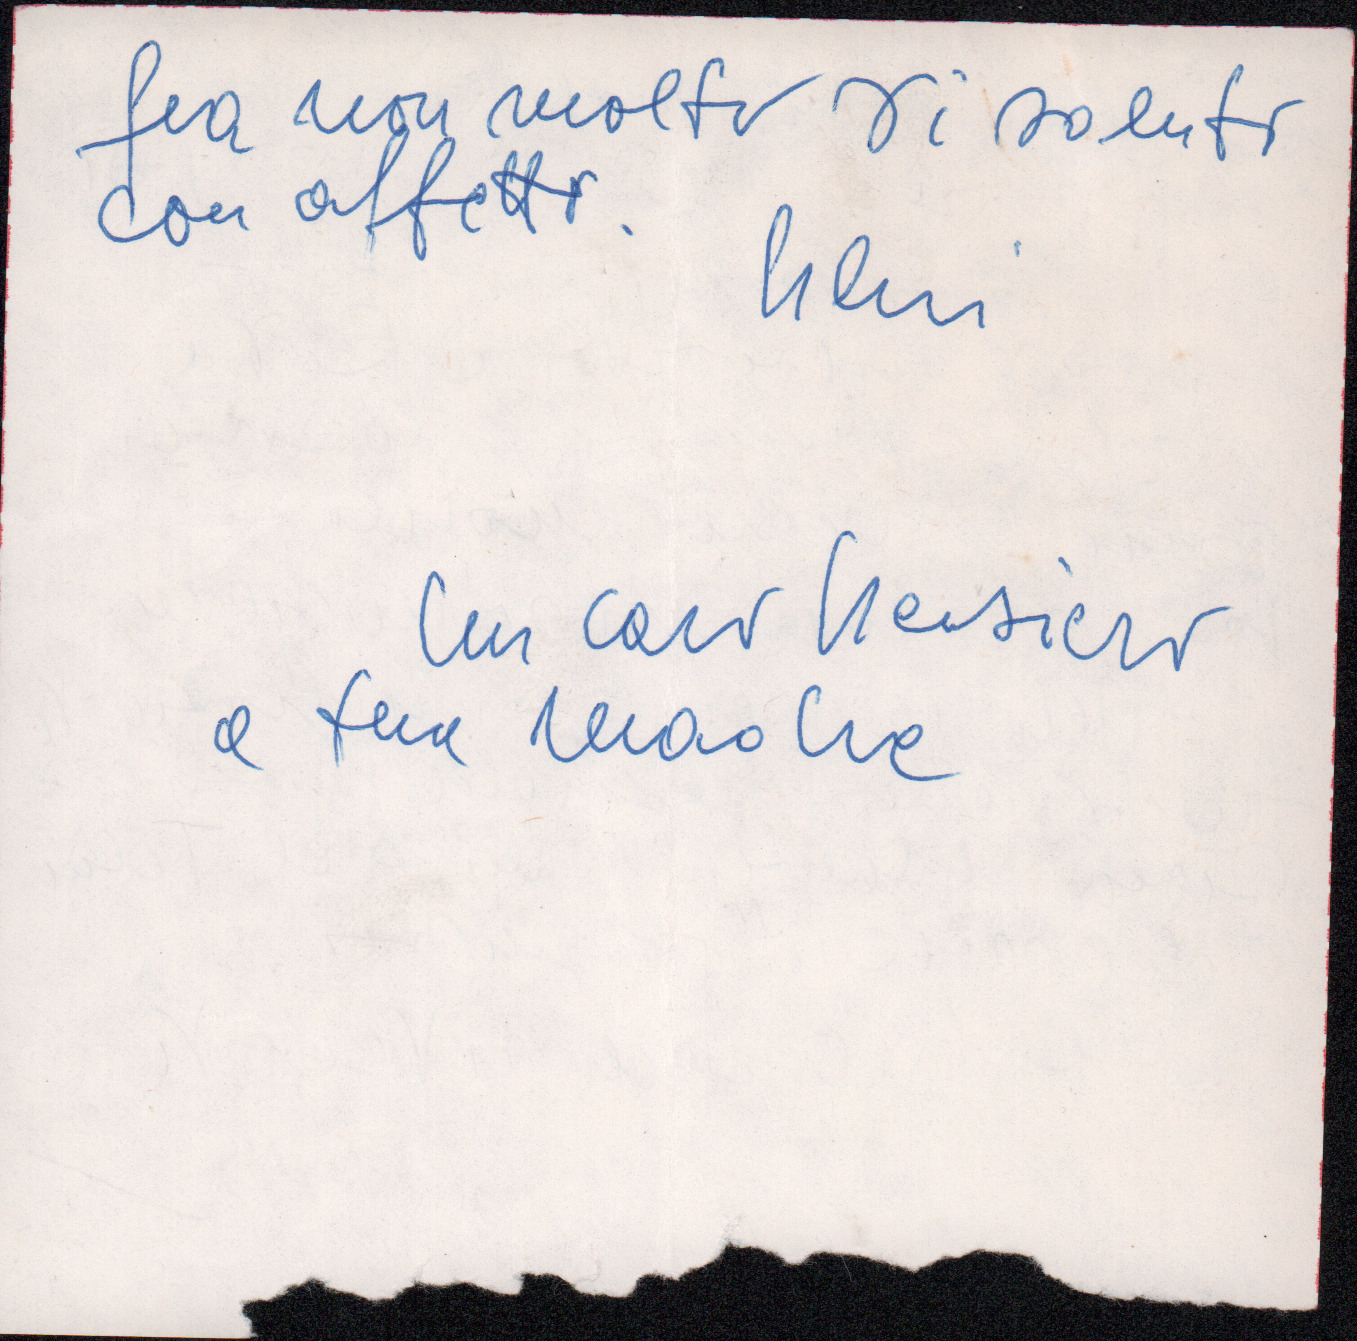 fra non molto vi saluto
con affetto.
Un caro pensiero
a tua madre